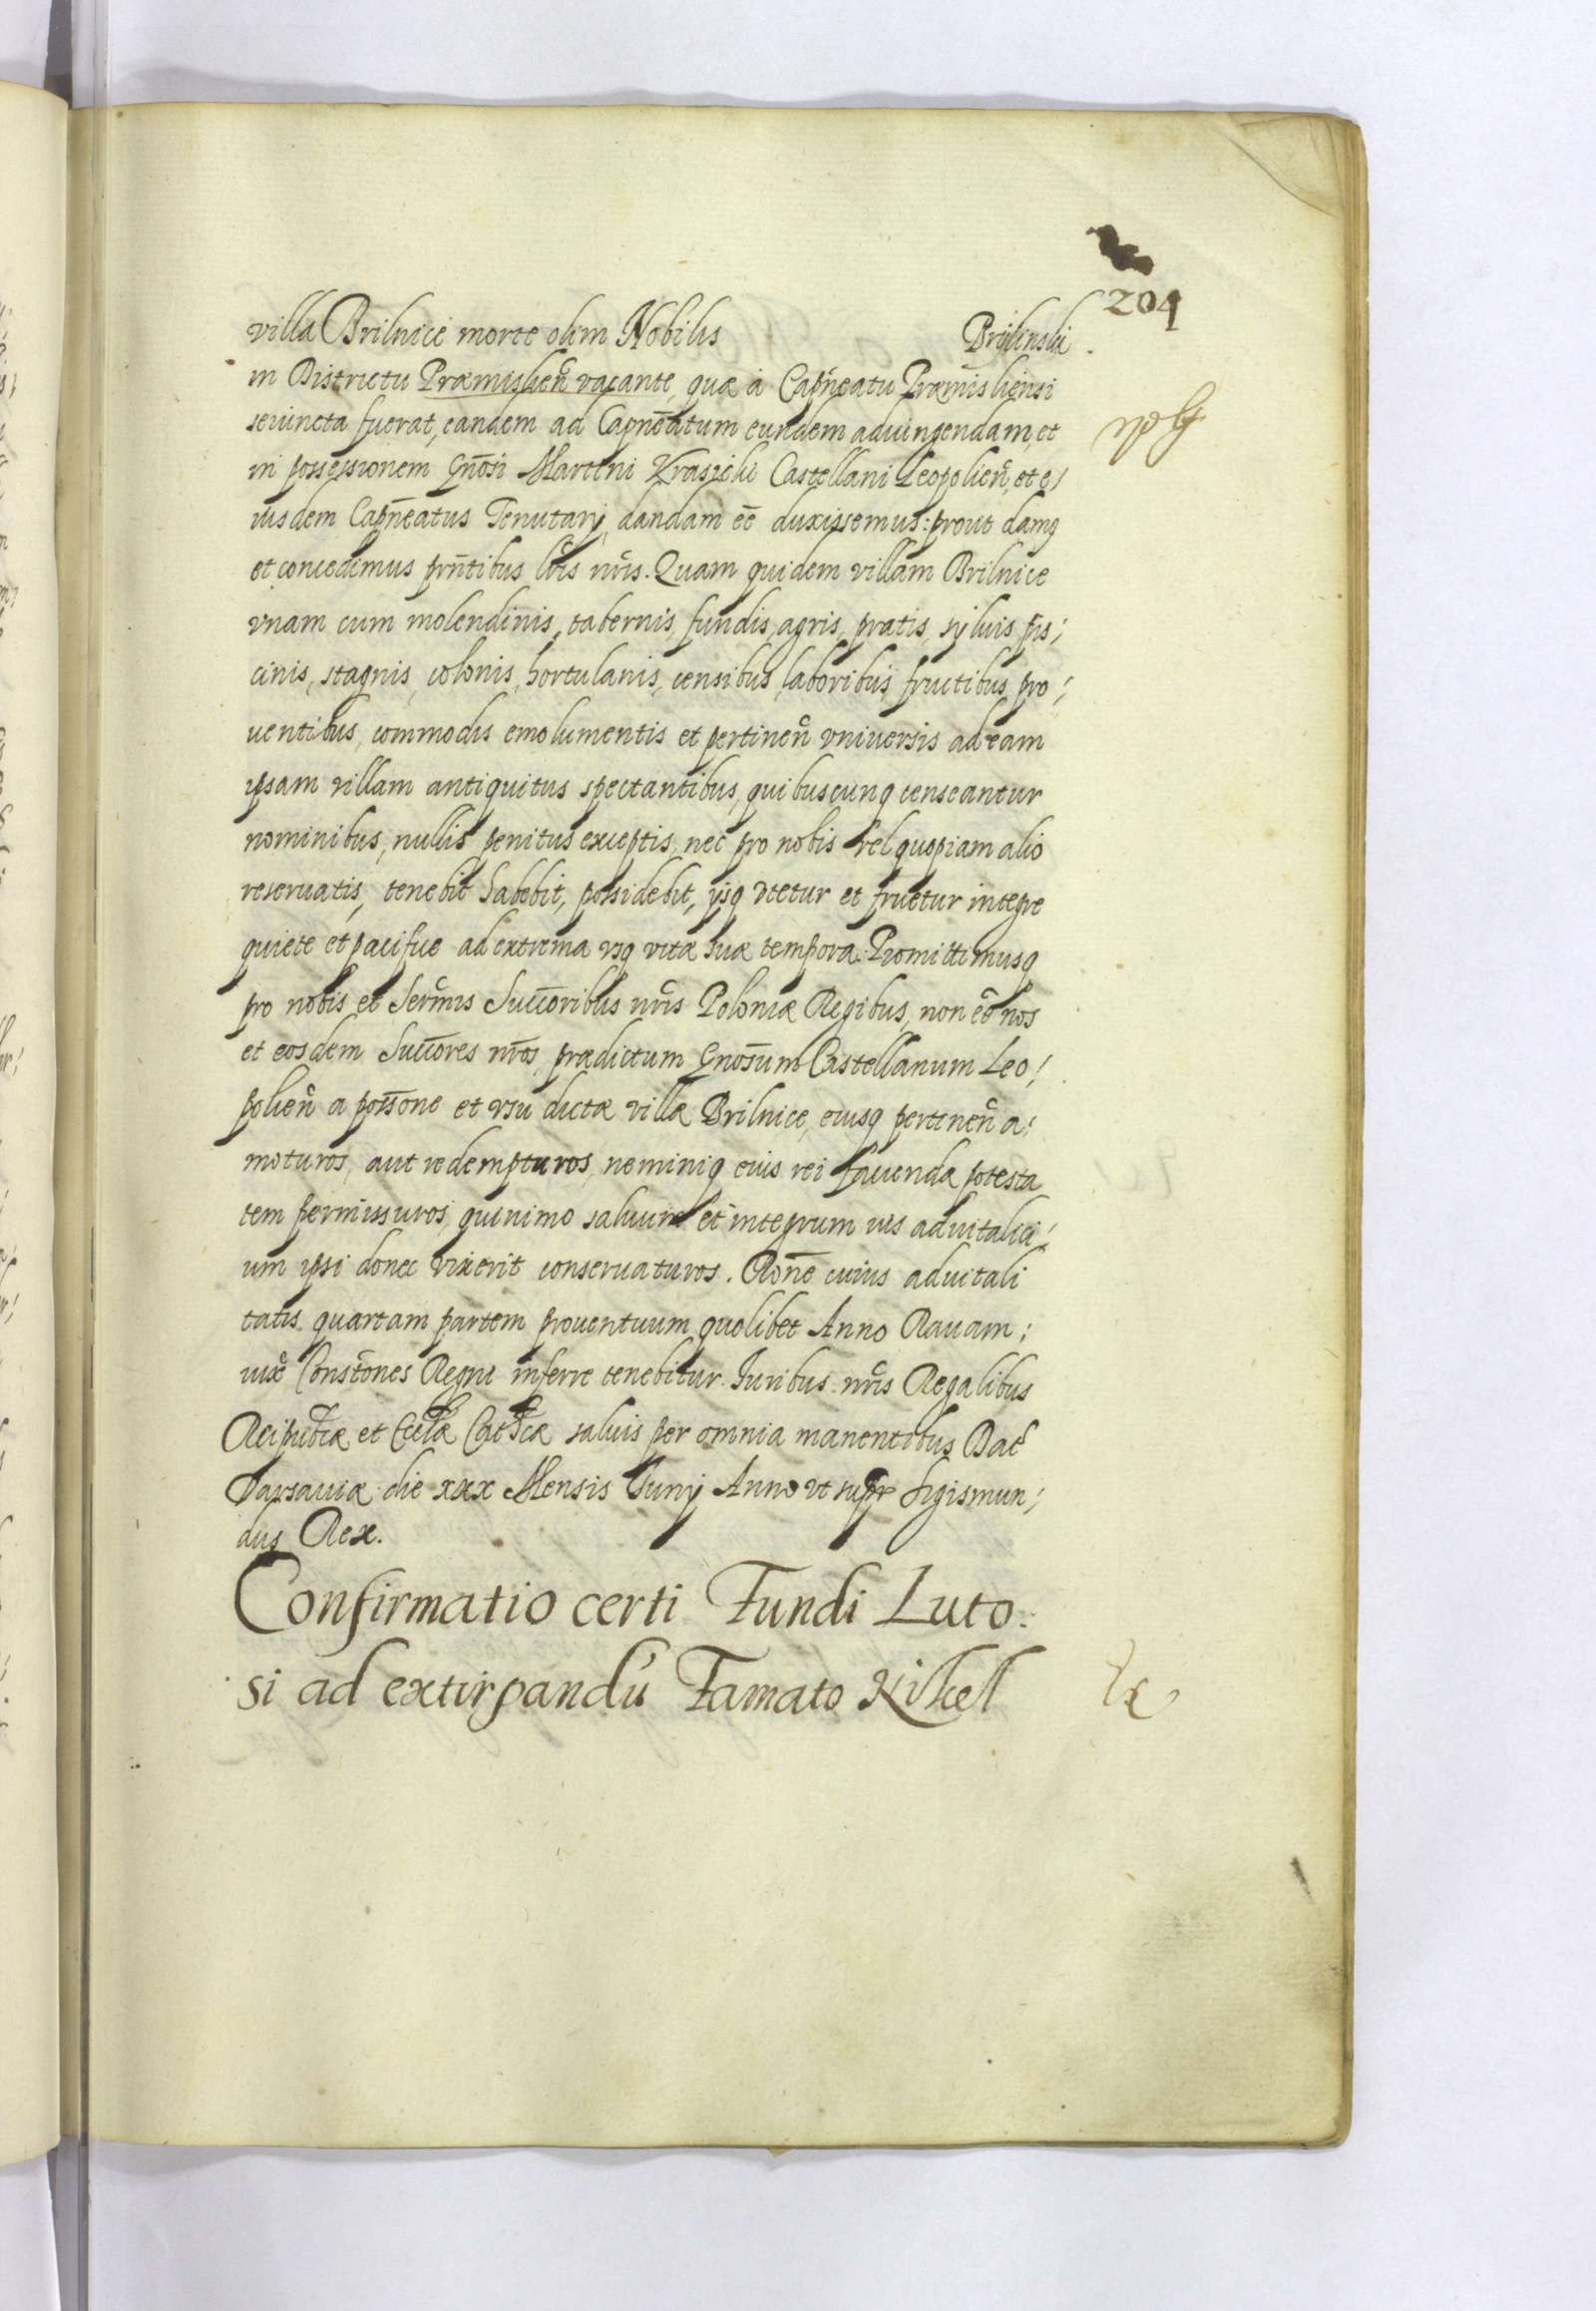 204
villa Brilnice morte olim Nobilis Brilinski
in Districtu Præmislien̄ vacante, quæ à Capn̄eatu Præmisliensi
seiuncta fuerat, eandem ad Capn̄eatum eundem adiungendam, et
in possessionem Gn̄osi Martini Krasicki Castellani Leopolien̄, et e/
iusdem Capn̄eatus Tenutarij, dandam eē duxissemus: prout damq
et concedimus prn̄tibus lr̄is nr̄is. Quam quidem villam Brilnice
vnam cum molendinis, tabernis, fundis, agris, pratis, syluis, pis;
cinis, stagnis, colonis, hortulanis, censibus, laboribus, fructibus, pro;
uentibus, commodis emolumentis et pertinen̄ vniuersis ad eam
ipsam villam antiquitus spectantibus, quibuscunq censeantur
nominibus, nullis penitus exceptis, nec pro nobis vel quopiam alio
reseruatis, tenebit habebit, possidebit, ijsq vtetur et fruetur integre
quiete et pacifice ad extrema vsq vitæ suæ tempora. Promittimusq
pro nobis et Serm̄is Succoribus nr̄is Poloniæ Regibus, non eē nos
et eosdem Succores nr̄os, prædictum Gn̄osum Castellanum Leo;
polien̄ a possone et vsu dictæ villæ Brilnice, eiusq pertinen̄ a;
moturos, aut redempturos, neminiq eius rei faciendæ potesta
tem permissuros, quinimo saluum et integrum ius aduitalici;
um ipsi donec vixerit conseruaturos. Rōne cuius aduitali
tatis quartam partem prouentuum quolibet Anno Rauam;
iuxᵉ Constōnes Regni inferre tenebitur. Iuribus nr̄is Regalibus
Reipubcæ et Eccl̄æ Cathcæ saluis per omnia manentibus Dat̄
Varsauiæ die xxx Mensis Iunij Anno vt supr Sigismun;
dus Rex.
Confirmatio certi Fundi Luto:
si ad extirpandū Famato Kikel